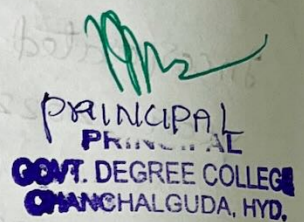 PRINCIPAL
PRINCIPAL
GOVT. DEGREE COLLEGE
CHANCHALGUDA, HYD.